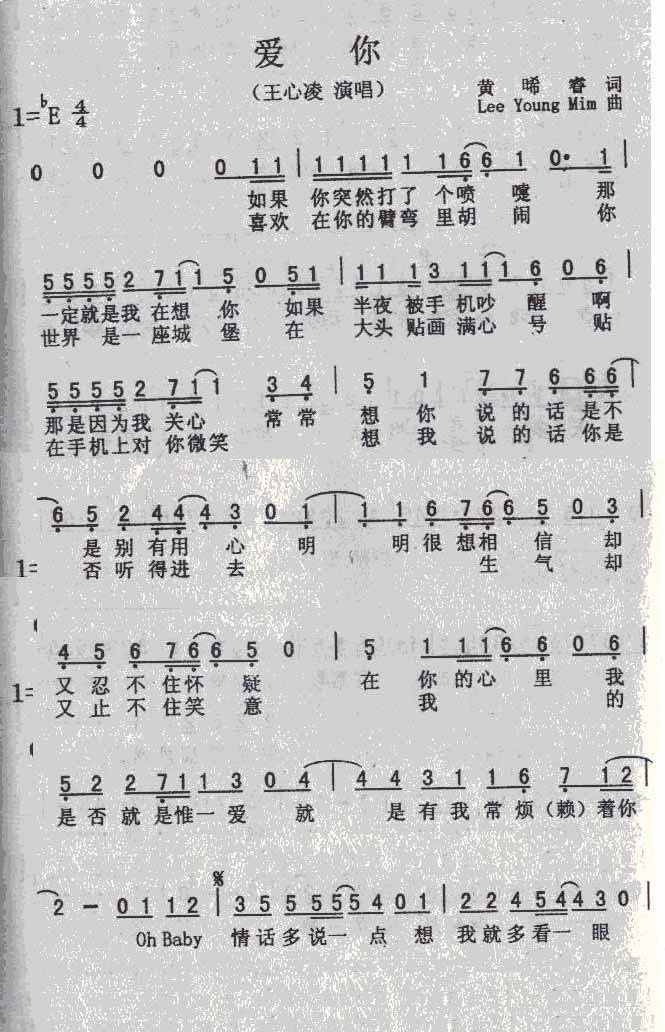 爱 你
（王心凌 演唱）
黄 晞 睿 词
1=♭E 4/4
Lee Young Mim 曲
0 0 0 0 1 1 | 1 1 1 1 1 1 6 6 1 0· 1 |
如果 你突然打了 个喷 嚏 那
喜欢 在你的臂弯 里胡 闹 你
5 5 5 5 2 7 1 1 5 0 5 1 | 1 1 1 3 1 1 1 6 0 6
一定就是我 在想 你 如果 半夜 被手 机吵 醒 啊
世界 是一座城 堡 在 大头 贴画 满心 号 贴
5 5 5 5 2 7 1 1 3 4 | 5 1 7 7 6 6 6
那是因为我 关心 常常 想 你 说的话是不
在手机上对 你微笑 想 我 说的话你是
6 5 2 4 4 4 3 0 1 | 1 1 6 7 6 6 5 0 3 |
是别有用 心 明 明很想相 信 却
1= 否听得进 去 生 气 却
4 5 6 7 6 6 5 0 | 5 1 1 1 6 6 0 6
又忍不住怀 疑 在 你的心 里 我
1= 又止不住笑 意 我 的
5 2 2 2 7 1 1 3 0 4 | 4 4 3 1 1 6 7 1 2
是否就是惟一爱 就 是有我常烦（赖）着你
2 － 0 1 1 2 | 3 5 5 5 5 5 4 0 1 | 2 2 4 5 4 4 3 0
Oh Baby 情话多说一 点 想 我就多看一 眼